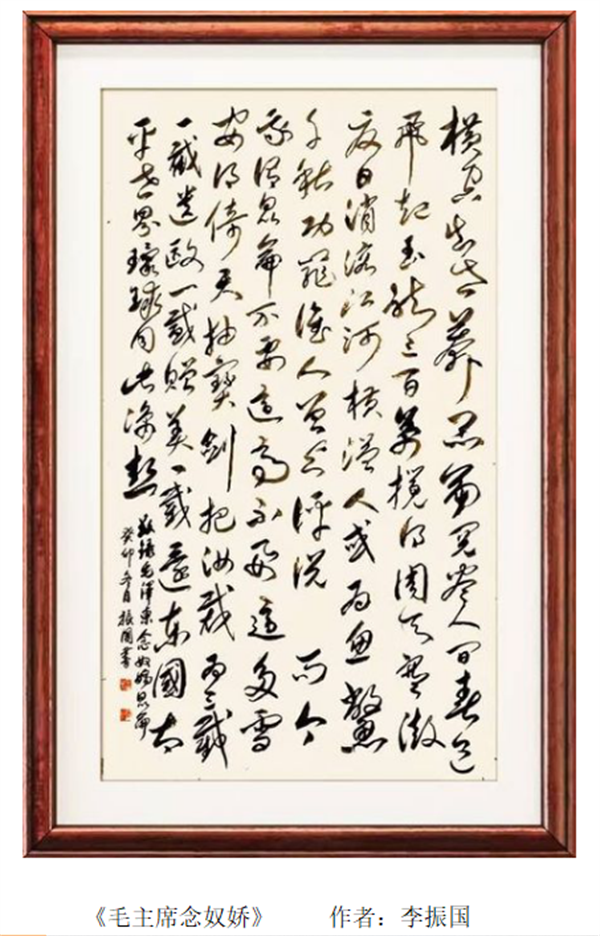 横空出世莽昆侖阅尽人间春色
飛起玉龍三百萬搅得周天寒澈
夏日消溶江河横溢人或为鱼鳖
千秋功罪谁人曾与评说 而今
我谓昆侖不要这高不要这多雪
安得倚天抽寶剑把汝裁为三截
一截遗欧一截赠美一截還东國太
平世界環球同此凉热
敬録毛澤東念奴娇昆侖
癸卯冬月振國書
《毛主席念奴娇》 作者：李振国